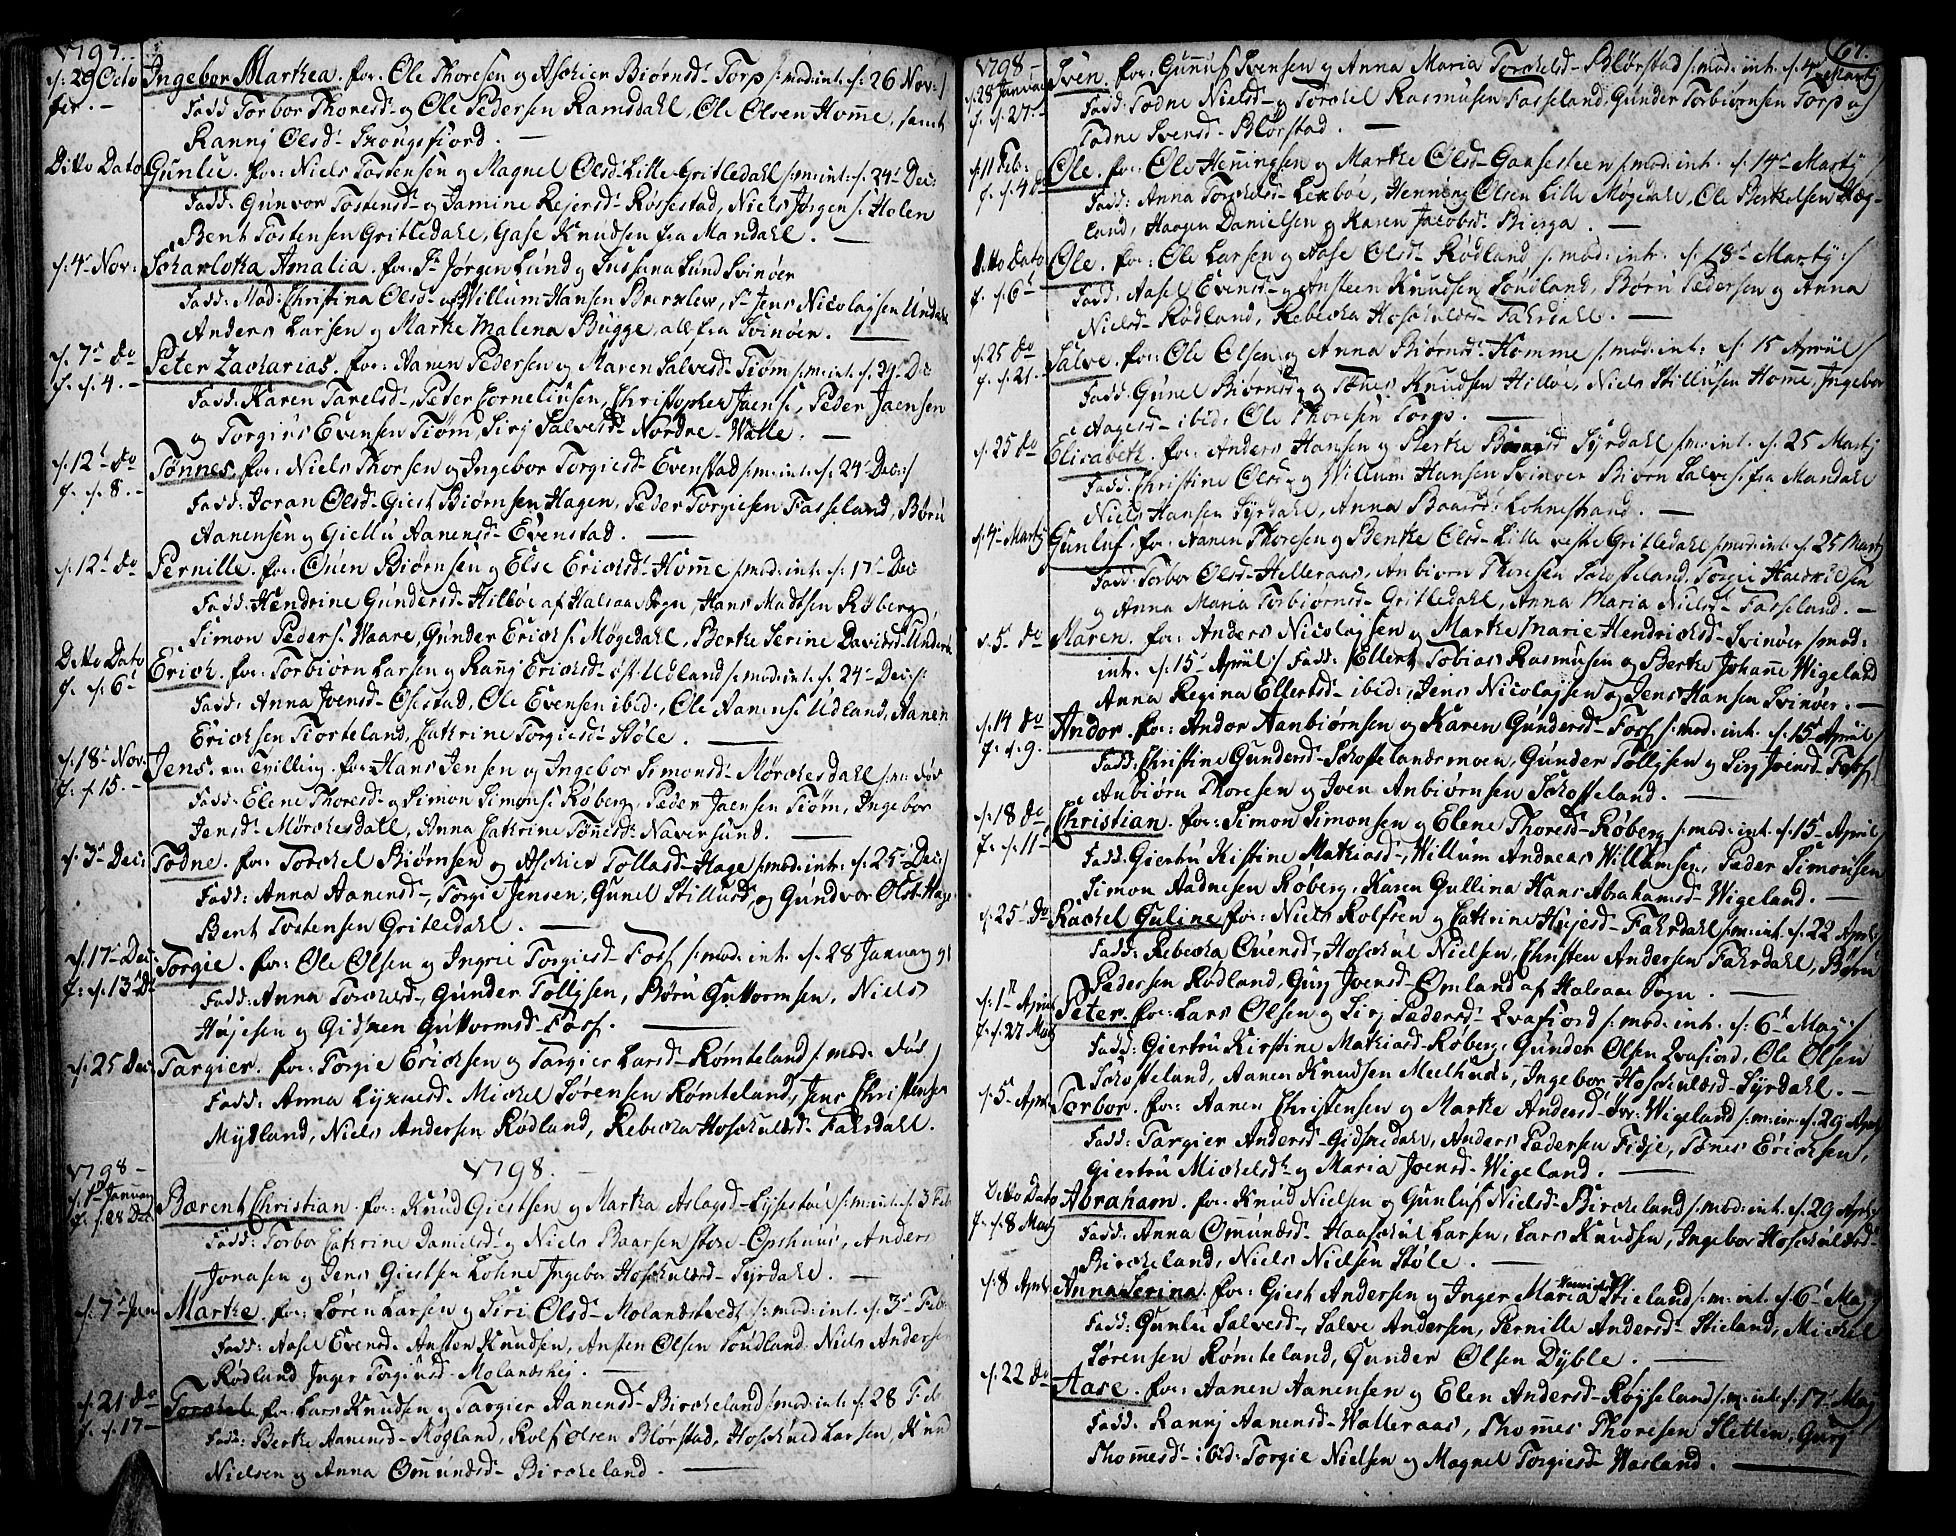 1797.
d: 29 Octo Ingebor Marthea. for: Ole Thoresen og Aschier Biørnsd- Torp /: mod: int: d: 26 Nov: /
Fadd Torbor Thoresd- og Ole Pedersen Ramsdahl, Ole Olsen Homme, samt
Rannj Olsd- Trongsfiord. —
Ditto Dato Gunlu. for: Niels Tostensen og Magnel Olsd- Lille Gritledahl /: m: int: d: 24 Dec:
Fadd: Gunvor Tostensd- og Jamine Rejersd- Røssestad, Niels Jørgens: Holen
Bent Tostensen Gritledahl, Gase Knudsen fra Mandahl. —
d: 4 Nov: Scharlotha Amalia. for: Sr Jørgen Lund og Sussena Lund Svinøer
Fadd: Mad: Christina Olsd- Willum Hansen Sr Jens Nicolajsen Undahl
Anders Larsen og Marthe Malena Bugge, all fra Svinøer. —
d. 7 do Peter Zacharias. for: Aanen Pedersen og Maren Salvesd- Tiøm /: m: int: d: 29 Dec
f. d. 4. — Fadd: Karen Tarelsd-, Peter Corneliusen, Christopher Jaens:, Peder Jaensen
og Torgius Evensen Tiøm, Sirj Salvesd- Nordre- Walle. —
d: 12 do Tønnes. for: Niels Thorsen og Ingebor Torgiesd- Evenstad /: m: int: d: 24 Dec: /
f. d. 8. — Fadd: Joran Olsd- Giest Biørnsen Hagen, Peder Torgiesen Fasseland, Børu
Aanensen og Giellu Aanensd- Evenstad. —
d: 12 do Pernille. for: Ouen Biørnsen og Else Erichsd- Homme /: mod: int: d: 17 Dec
Fadd: Hendrine Gundersd- Hilløe af Halsaa Sogn, Hans Madtsen Røberg,
Simon Peders: Waare, Gunder Erichs: Møgedahl, Berthe Serine Davidsd- Unders
Ditto Dato Erich. for: Torbiørn Larsen og Rannj Erichsd- øst- Udland /: mod: int: d: 24 Dec:
f. d: 6 Fadd: Anna Joensd- Osestad, Ole Evensen ibid:, Ole Aanens: Udland, Aanen
Erichsen Tiorteland, Cathrine Torgiesd- Støle. —
d: 18 Nov: Jens. en Tvilling. for: Hans Jensen og Ingebor Simonsd- Mørchesdahl /: m: død
f: d 15. — Fadd: Elene Thoresd- og Simon Simons: Røberg, Peder Jaensen Tiøm, Ingebor
Jensd- Mørchesdall, Anna Cathrine Tønesd- Naversund. —
d: 3 Dec: Todne. for: Torchel Biørnsen og Aschier Tollasd- Hage /: mod: int: d: 25 Dec: /
Fadd: Anna Aanensd-, Torgie Jensen, Gunel Stillusd- og Gundvor Olsd- Hage
Bent Tostensen Gritledahl. —
d: 17 Dec: Torgie. for: Ole Olsen og Ingrie Torgiesd- Foss /: mod: int: d: 28 Januarij 98
f: d: 13 Dc Fadd: Anna Torchelsd-, Gunder Tolljsen, Børu Guttormsen, Niels
Høyesen og Gidsken Guttormsd- Foss. —
d: 25 Dec: Targier. for: Torgie Erichsen og Targier Larsd- Rømteland /: mod: død /
Fadd: Anna Michel Sørensen Rømteland, Jens Christensen
Mydland, Niels Andersen Rødland, Rebecha Hoschuldsd- Fahrdahl.
1798 — 1798. —
d: 1 Januarij Bærent Christian. for: Knud Giestsen og Martha Aslagsd- Lysestøl /: m: int: d: 3 Feb:
f: d: 28 Dec. Fadd: Torbor Cathrine Danielsd- og Niels Baarsen store- Epshuus, Anders
Jonasen og Jens Giestsen Lohne, Ingebor Hoschuldsd- Syrdahl. —
d: 7 Jan Marthe. for: Søren Larsen og Siri Olsd- Molandstvedt /: mod: int: d: 3 Feb:
Fadd: Aasel Evensd- Ansten Knudsen, Ansten Olsen Søndland, Niels Andersen
Rødland, Inger Torgiusd- Molandshej. —
d. 21 do Torchel. for: Lars Knudsen og Targier Aanensd- Birkeland /: mod: int: d: 28 Feb
f. d. 17 — Fadd: Berthe Aanensd- Røgland, Rolf Olsen Blørstad, Hoschued Larsen, Knud
Nielsen og Anna Ommundsd- Birkeland. —
67.
1798 — Sven. for: Gunnuf Svensen og Anna Maria Torchelsd- Blørstad /: mod: int: d: 4 Martij
d: 28 Januarij
f. d. 27. — Fadd: Todne Nielsd- og Torchel Rasmusen Fasseland, Gunder Torbiørnsen Torp og
Todne Svensd- Blørstad. —
d: 11 Feb: Ole. for: Ole Henningsen og Marthe Olsd- Gaasesteen /: mod: int: d: 14 Martij /
f. d. 4 do Fadd: Anna Torchelsd- Lexbøe, Henning Olsen Lille Møgedahl, Ole Berthelsen Hæg-
land, Haagen Danielsen og Karen Jacobsd- Bierga. —
Ditto Dato Ole. for: Ole Larsen og Aase Olsd- Rødland /: mod: int: d: 18 Martij: /
f. d. 6 Fadd: Aasel Evensd- og Ansteen Knudsen Søndland, Børu Pedersen og Anna
Nielsd- Rødland, Rebecha Hoschuldsd- Fahrdahl. —
d: 25 do Salve. for: Ole Olsen og Anna Biørnsd- Homme /: mod: int: d: 15 Apriil /
f. d. 21. — Fadd: Gunel Biørnsd- og Tønes Knudsen Hilløe, Niels Stillusen Homme, Ingebor
Aagesd- ibid: Ole Thoresen Torp. —
d: 25 do Elisabeth. for: Anders Hansen og Berthe Syrdahl /: m: int: d: 25 Martij
Fadd: Christine Olsd- og Willum Hansen Svinøer Biørn Salves: fra Mandahl
Niels Hansen Syrdahl, Anna Baarsd- Lohnestrand. —
d. 4 Martij Gunluf. for: Aanen Thoresen og Benthe Olsd- Lille vestre Gritledahl /: mod: int: d: 25 Martj
Fadd: Torbor Olsd- Helleraas, Anbiørn Thoresen Schofteland, Torgie Halvorsen
og Anna Maria Torbiørnsd- Gritledahl, Anna Maria Nielsd- Fasseland. —
d. 5 do Maren. for: Anders Nicolajsen og Marthe Marie Hendrichsd- Svinøer /: mod:
int: d: 15 Apriil / Fadd: Ellert Tobias Rasmusen og Berthe Johanne Wigeland
Anna Regina Ellertsd- ibid:, Jens Nicolajsen og Jens Hansen Svinøer. —
d: 14 do Andor. for: Andor Aanbiørnsen og Karen Gundersd- Foss /: mod: int: d: 15 Apriil /
f. d. 9. Fadd: Christine Gundersd- Schoftelandsmoen, Gunder Tolljsen og Sirj Joensd- Foss,
Anbiørn Thoresen og Iven Anbiørnsen Schofteland. —
d: 18 do Christian. for: Simon Simonsen og Elene Thoresd- Røberg /: mod: int: d: 15 April /
f. d. 11 Fadd: Giertru Kistine Mathiasd-, Willum Andreas Willumsen, Peder Simonsen
Simon Aadnesen Røberg, Karen Gullina Hans Abrahamsd- Wigeland. —
d: 25 do Rachel Guline for: Niels Rolfsen og Cathrine Høyesd- Fahrdahl /: m: int: d: 22 April /
Fadd: Rebecha Ouensd-, Hoschul Nielsen, Christen Andersen Fahrdahl, Børu
Pedersen Rødland, Gurj Joensd- Omland af Halsaa Sogn. —
d: 1 April Peter. for: Lars Olsen og Sirj Pedersd- Qvafiord /: mod: int: d: 6 Maj: /
f. d. 27 Mar Fadd: Giertru Kirstine Mathiasd- Røberg, Gunder Olsen Qvafiord, Ole Olsen
Schofteland, Aanen Knudsen Meelhuus, Ingebor Hoschuldsd- Syrdahl. —
d. 5 April Torbor. for: Aanen Christensen og Marthe Andersd- Øvr: Wigeland /: m: int: d: 29 April
Fadd: Targier Andersd- Gidskedahl, Anders Pedersen Fidje, Tønes Erichsen,
Giertru Michelsd- og Maria Joensd- Wigeland. —
Ditto Dato Abraham. for: Knud Nielsen og Gunluf Nielsd- Birkeland /: mod: int: d: 29 April
f. d. 8 Martj Fadd: Anna Omundsd- Haaschul Larsen, Lars Knudsen, Ingebor Hoschuldsd-
Birkeland, Niels Nielsen Støle. —
d 8 April Anna Serina. for: Giest Andersen og Inger Maria Henrichsd- Stieland /: m: int: d: 6 Maj
Fadd: Gunlu Salvesd-, Salve Andersen, Pernille Andersd- Stieland, Michel
Sørensen Rømteland, Gunder Olsen Dyble. —
d. 22 do Aase. for: Aanen Aanensen og Elen Andersd- Røysseland /: m: int: d: 17 Maj
Fadd: Rannj Aanensd- Walleraas, Thommes Thoresen Sletten, Gurj
Thommesd- ibid: Torgie Nielsen og Magnel Torgiesd- Wasland. —